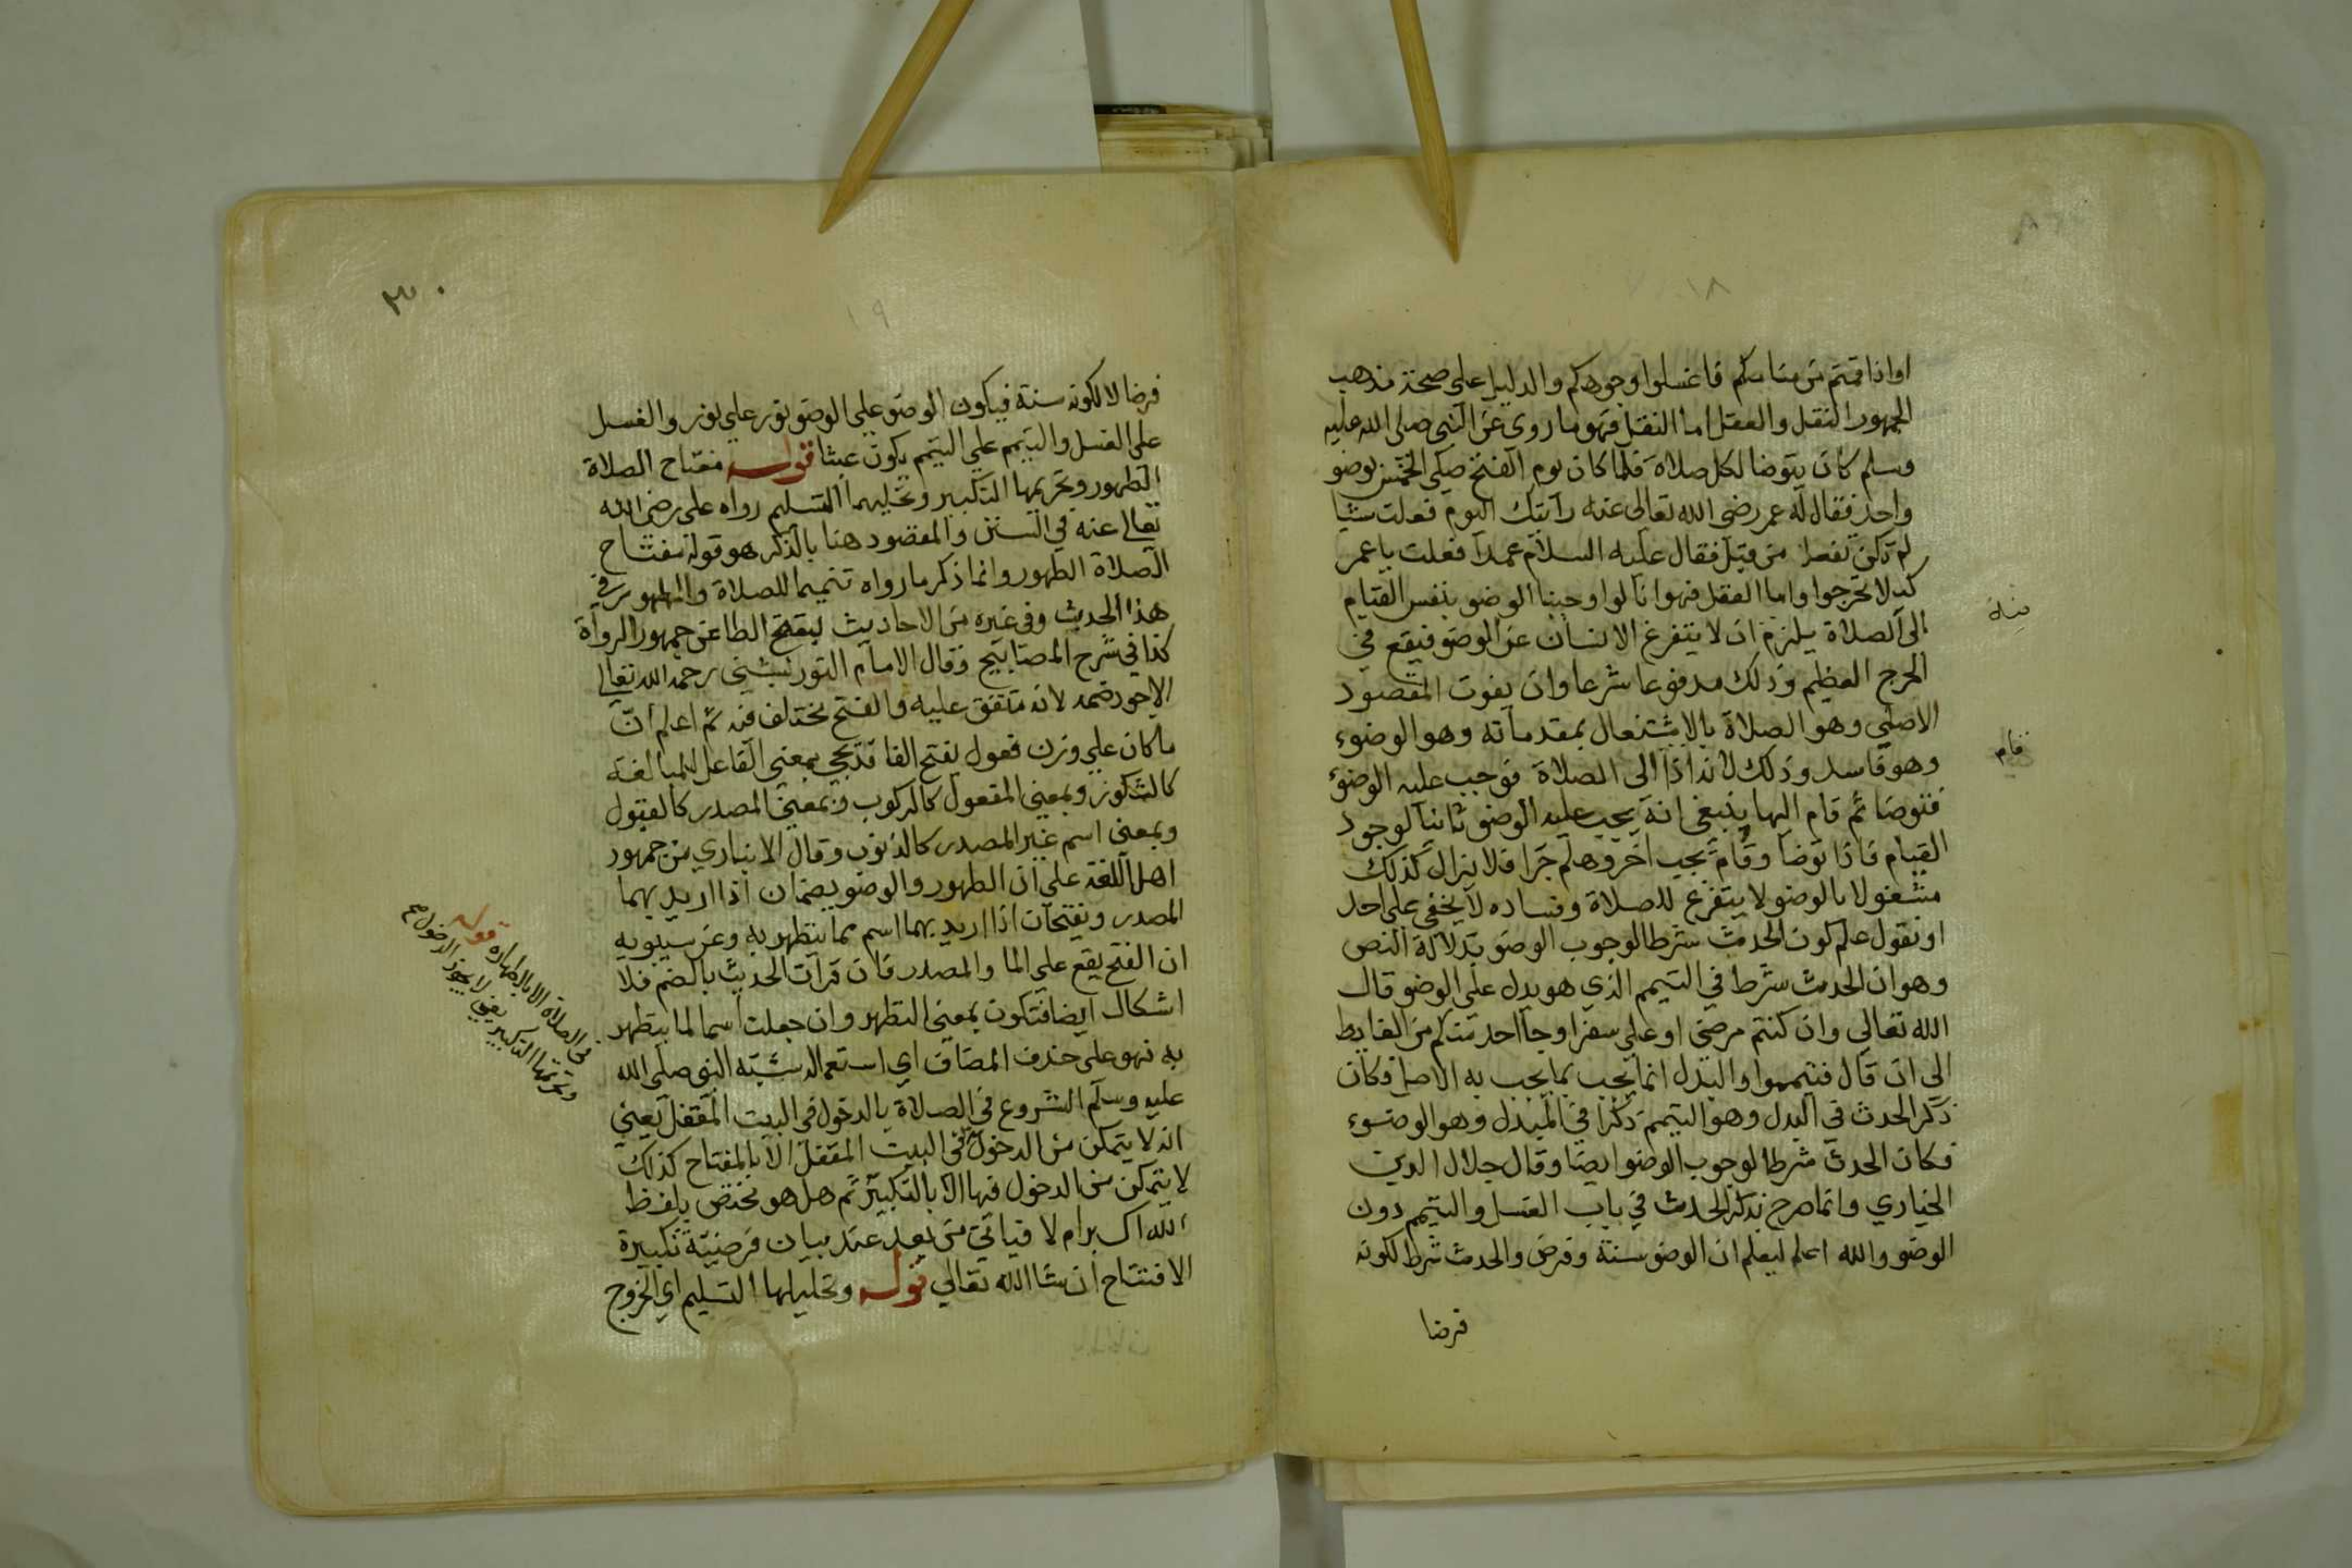 او اذا قمتم من منامكم فاغسلوا وجوهكم والدليل على صحة مذهب
الجمهور النقل والعقل اما النقل فهو ما روى عن النبي صلى الله عليه
وسلم كان يتوضا لكل صلاة فلما كان يوم الفتح صلى الخمس بوضو
واحد فقال له عمر رضى الله تعالى عنه رايتك اليوم فعلت شيا
لم تكن تفعله من قبل فقال عليه السلام عمدا فعلت يا عمر
كيلا تحرجوا واما العقل فهو انا لو اوجبنا الوضو بنفس القيام
الى الصلاة يلزم ان لا يتفرغ الانسان عن الوضو فيقع في
الحرج العظيم وذلك مدفوعا شرعا وان يفوت المقصود
الاصلي وهو الصلاة بالاشتغال بمقدماته وهو الوضوء
وهو فاسد وذلك لانه اذا الى الصلاة فوجب عليه الوضوء
فتوضا ثم قام اليها ينبغى انه يجب عليه الوضو ثانيا لوجود
القيام فاذا توضا وقام يجب اخر وهلم جرا فلا يزال كذلك
مشغولا بالوضو لا يتفرغ للصلاة وفساده لا يخفى على احد
او نقول علم كون الحدث شرطا لوجوب الوضو بدلالة النص
وهو ان الحدث شرط في التيمم الذي هو بدل على الوضو قال
الله تعالى وان كنتم مرضى او على سفر او جا احد منكم من الغايط
الى ان قال فتيمموا والبدل انما يجب بما يجب به الاصل فكان
ذكر الحدث في البدل وهو التيمم ذكرا في المبدل وهو الوضوء
فكان الحدث شرطا لوجوب الوضو ايضا وقال جلال الدين
الخبازي وانما صرح بذكر الحدث في باب الغسل والتيمم دون
الوضو والله اعلم ليعلم ان الوضو سنة وفرض والحدث شرط لكونه
فرضا
منه
قام
١٨
٣٠
١٩
فرضا لا لكونه سنة فيكون الوضو على الوضو نور على نور والغسل
على الغسل والتيمم على التيمم يكون عبثا قوله مفتاح الصلاة
الطهور وتحريمها التكبير وتحليهما التسليم رواه على رضى الله
تعالى عنه في السنن والمقصود هنا بالذكر هو قوله مفتاح
الصلاة الطهور وانما ذكر ما رواه تتميما للصلاة والطهور في
هذا الحديث وفي غيره من الاحاديث بفتح الطا عن جمهور الرواة
كذا في شرح المصابيح وقال الامام التوربشتي رحمه الله تعالى
الاجود ضمه لانه متفق عليه والفتح مختلف فيه ثم اعلم ان
ما كان على وزن فعول بفتح الفا قد يجي بمعنى الفاعل للمبالغة
كالشكور وبمعنى المفعول كالركوب وبمعنى المصدر كالقبول
وبمعنى اسم غير المصدر كالذنوب وقال الانباري من جمهور
اهل اللغة على ان الطهور والوضو يضمان اذا اريد بهما
المصدر ويفتحان اذا اريد بهما اسم ما يتطهر به وعن سيبويه
ان الفتح يقع على الما والمصدر فان قرات الحديث بالضم فلا
اشكال ايضا فتكون بمعنى التطهر وان جعلت اسما لما يتطهر
به فهو على حذف المضاف اي استعماله شبه النبي صلى الله
عليه وسلم الشروع في الصلاة بالدخول في البيت المقفل يعني
انه لا يتمكن من الدخول في البيت المقفل الا بالمفتاح كذلك
لا يتمكن من الدخول فيها الا بالتكبير ثم هل هو مختص بلفظ
الله اكبر ام لا فياتي من بعد عند بيان فرضية تكبيرة
الافتتاح ان شا الله تعالى قوله وتحليلها التسليم اي الخروج
يعني لا يجوز الدخول
في الصلاة الا بالطهارة قوله
وتحريمها التكبير